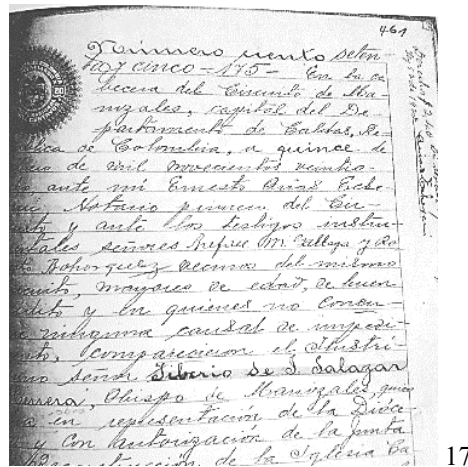 461
Número ciento seten-
ta y cinco = 175 = En la ca
becera del Circuito de Ma-
nizales, capital del De-
partamento de Caldas, Re-
lica de Colombia, a quince de
de mil novecientos veintio-
ante mí Ernesto Arias Eche
Notario primero del Cir-
y ante los testigos instru-
tales señores Rafael M. Calleja y Ro
Bohorquez vecinos del mismo
cuito, mayores de edad, de buen
dito y en quienes no concu-
ninguna causal de impedi-
nto, compareció el Ilustrí-
mo señor Tiberio de J. Salazar
Herrera, Obispo de Manizales, quien
en representación de la Dióce-
y con autorización de la Junta
de la Iglesia Ca
17